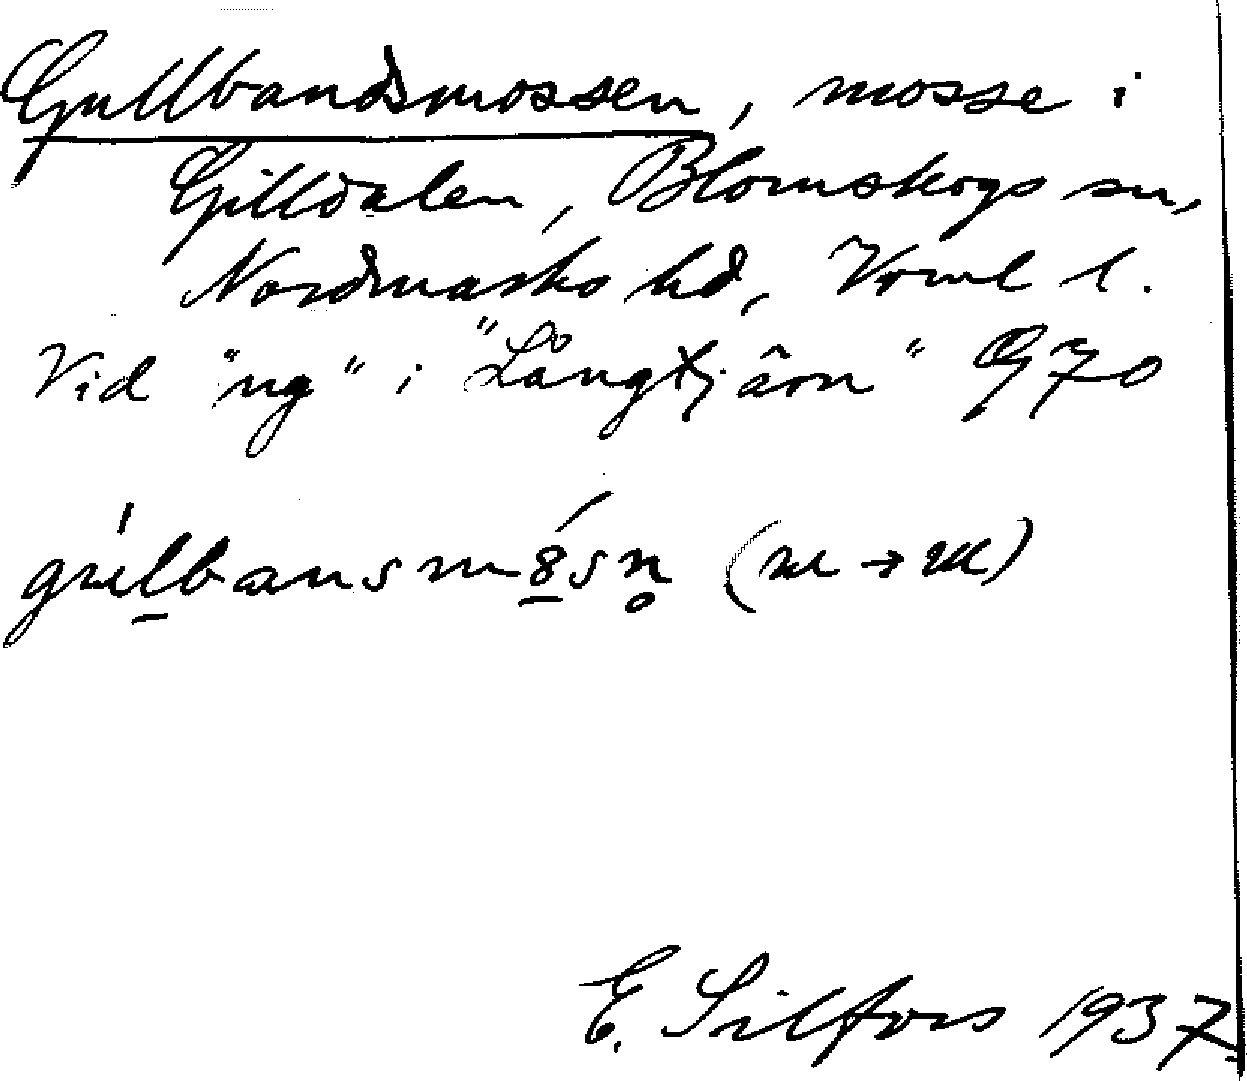 Gullbandsmossen, mosse i
Gilldalen, Blomskogs sn,
Nordmarks hd, Verml l.
Vid "ng" i "Långtjärn" G70
gulbansmåsn (m → m)
E. Silfors 1937